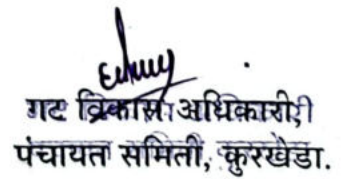 गट विकास अधिकारी,
पंचायत समिती, कुरखेडा.